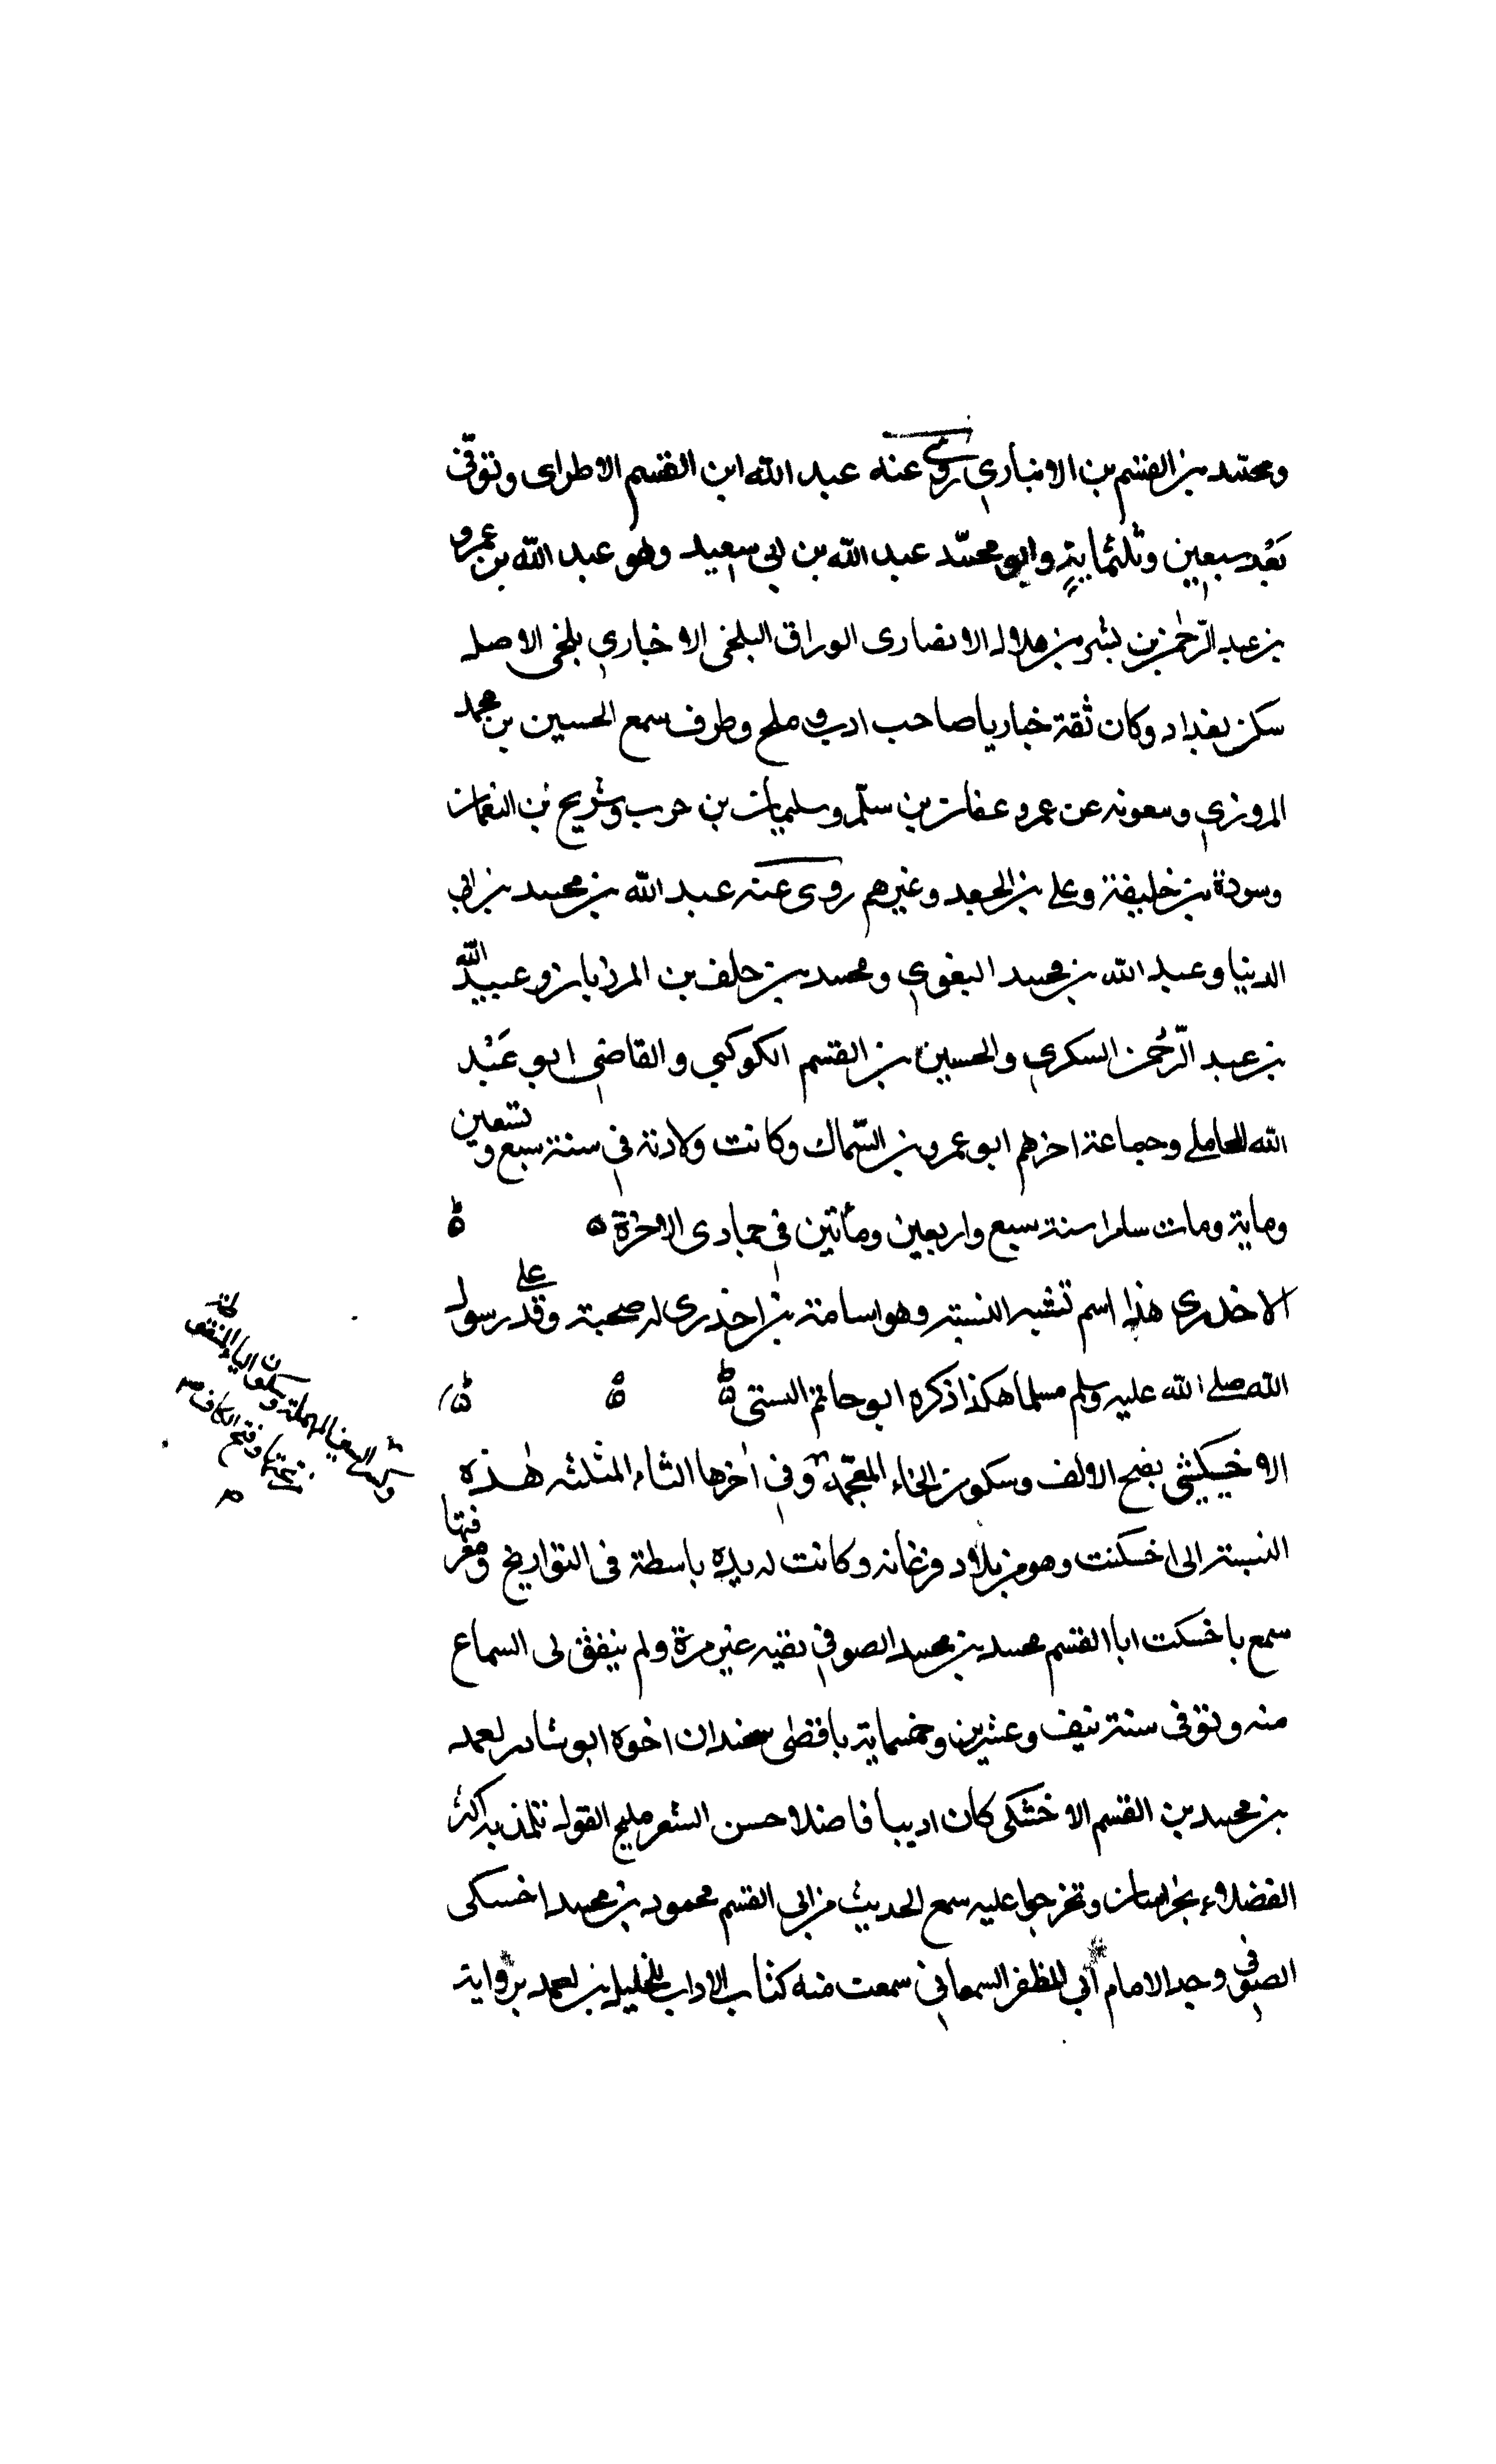 ومحمد بن القسم بن الانباري روى عنه عبد الله ابن القسم الاطراى وتوفى
بعد سبعين وثلثماية وابو محمد عبد الله بن ابى سعيد وهو عبد الله بن عمرو
بن عبد الرحمن بن بشر بن هلال الانصارى الوراق البلخى الاخباري بلخى الاصل
سكن بغداد وكان ثقة خباريا صاحب ادب وملح وطرف سمع الحسين بن محمد
المروزي ومعونه عن عمرو عفان بن سلم وسليمان بن حرب وشريح بن النعمان
وسودة بن خليفة وعلى بن الجعد وغيرهم روى عنه عبد الله بن محمد بن ابى
الدنيا وعبد الله بن محمد البغوي ومحمد بن خلف بن المرزبان وعبيد الله
بن عبد الرحمن السكري والحسين بن القسم الكوكبي والقاضي ابو عبد
الله المحاملي وجماعة اخرهم ابو عمرو بن السماك وكانت ولادته في سنة سبع وتسعين
وماية ومات سلمرا سنة سبع واربعين ومأتين في جمادى الاخرة ه ه
الاخدري هذا اسم تشبه النسبة وهو اسامة بن اخدرى له صحبة وقد على رسول
الله صلى الله عليه وسلم مسلما هكذا ذكره ابو حاتم البستى ه ه ه
الاخسيكثى بفتح الالف وسكون الخاء المعجمة وفى اخرها الثاء المثلثه هذه
وكسر السين المهملة وسكون الياء المنقوطة
من تحتها وفتح الكاف صح
النسبة الى اخسكنت وهو من بلاد فرغانه وكانت له يده باسطة فى التواريخ ومعرفتها
سمع باخسكت ابا القسم محمد بن محمد الصوفي نقيه غير مرة ولم يتفق لى السماع
منه وتوفى سنة نيف وعشرين وخمسماية باقظى سمندان اخوه ابو شادر احمد
بن محمد بن القسم الاخشكى كان اديبا فاضلا حسن الشعر مليح القول تلمذ به اكثر
الفضلاء بخراسان وتخرجوا عليه سمع الحديث من ابى القسم محمود بن محمد اخسكى
الصوفى وجد الامام ابي المظفر السمعاني سمعت منه كتاب الاداب للخليل بن احمد برواية